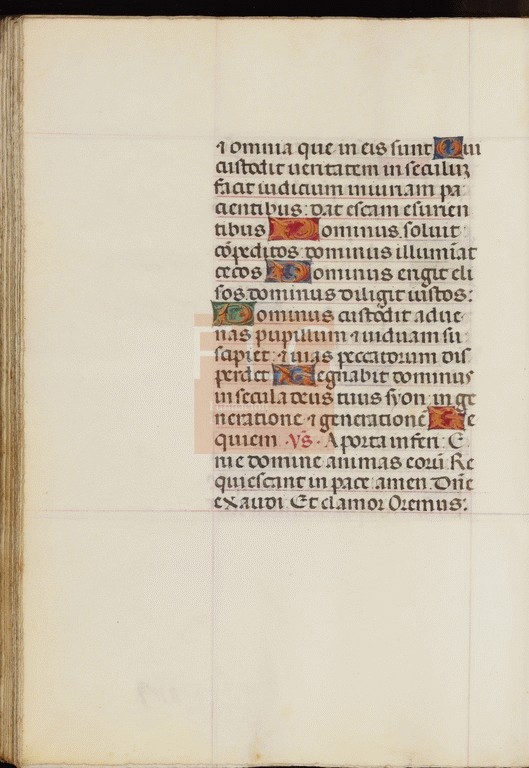 ⁊ omnia que in eis sunt Qui
custodit ueritatem in seculuʒ
facit iudicium iniuriam pa
cientibus: dat escam esurien
tibus Dominus soluit
cōpeditos dominus illumīat
cecos Dominus erigit eli
sos dominus diligit iustos:
Dominus custodit adue
nas pupillum ⁊ uiduam su
scipiet: ⁊ uias peccatorum dis
perdet Regnabit dominus
in secula deus tuus syon: in ge
neratione ⁊ generationē Re
quiem · vs̄ · A porta inferi: E
rue domine animas eorū Re
quiescant in pace amen. Dn̄e
exaudi Et clamor Oremus: